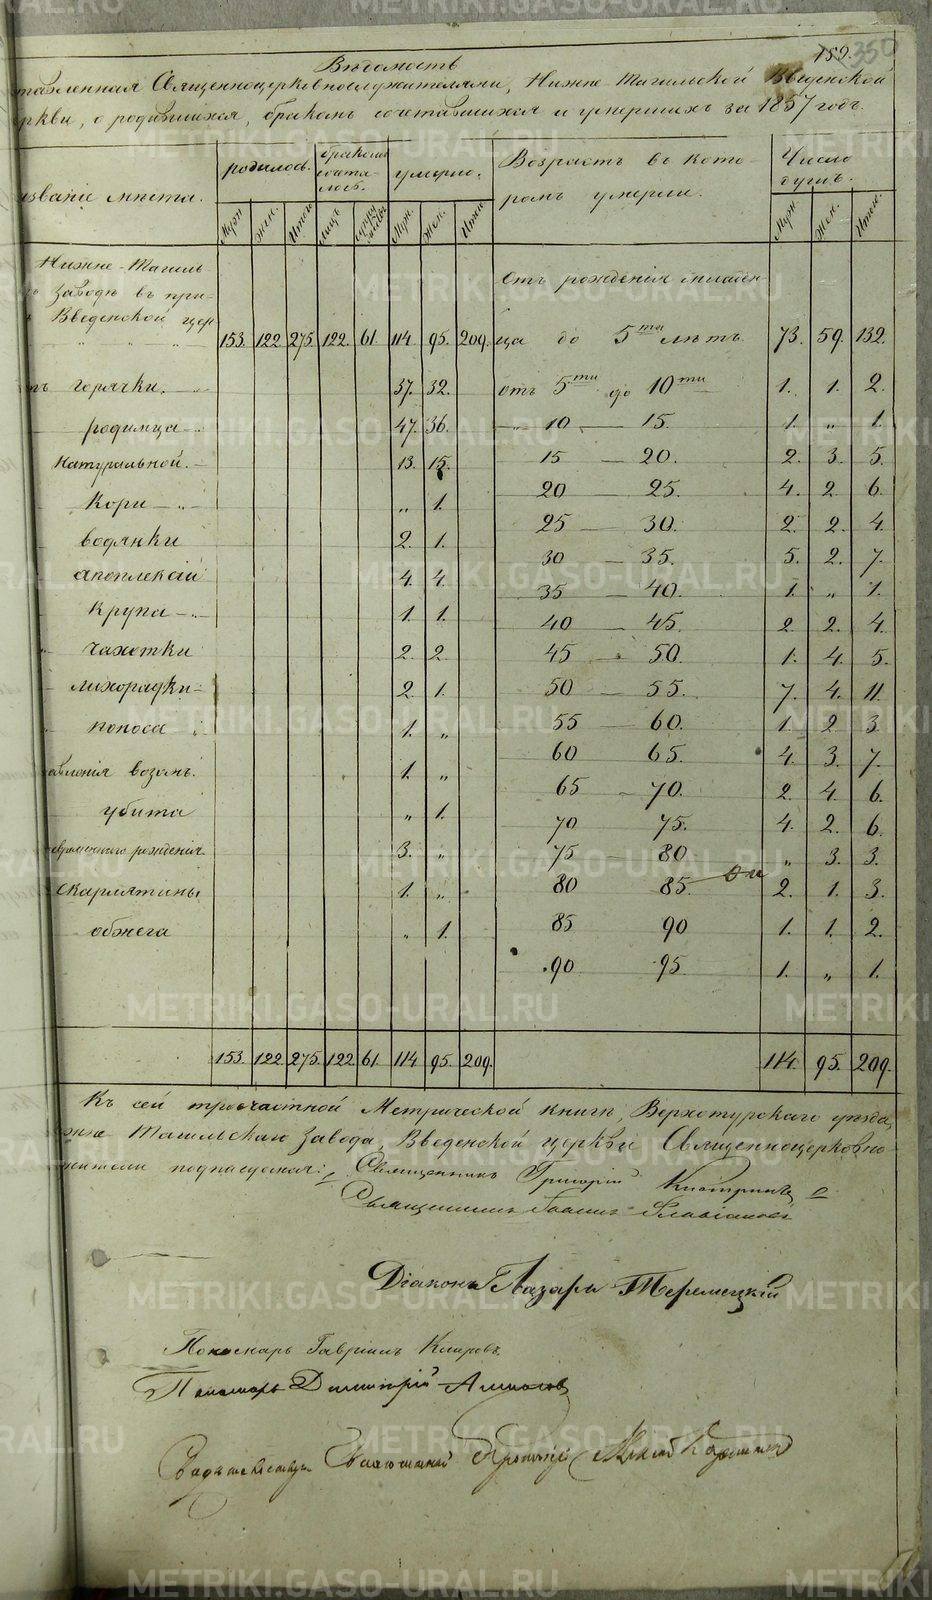 152. 350
Вѣдомость
тавленная Священноцерковнослужителями, Нижне-Тагильской Введенской
ркви, о родившихся, бракомъ сочетавшихся и умершихъ за 1857 годъ.
званіе мѣста. родилось. бракомъ сочта-лось. умерло. Возрастъ въ кото-ромъ умерли. Число душъ.
Муж. Жен. Итого Лицъ Муж. Жен. Итог. Муж. Жен. Итог.
Нижне-Тагиль
заводѣ въ при-
Введенской цер
153. 122. 275. 122. 61. 114. 95. 209. Отъ рожденія младен-ца до 5ти лѣтъ. 73. 59. 132.
горячки. 37. 32. отъ 5ти до 10ти 1. 1. 2.
родимца 47. 36. „ 10 — 15. 1. „ 1.
натуральной. 13. 15. 15 — 20. 2. 3. 5.
Кори „ 1. 20 — 25. 4. 2. 6.
водянки 2. 1. 25 — 30. 2. 2. 4.
апоплексіи 4. 4. 30 — 35. 5. 2. 7.
крупа 1. 1. 35 — 40. 1. „ 1.
чахотки 2. 2. 40 — 45. 2. 2. 4.
лихорадки 2. 1. 45 — 50. 1. 4. 5.
поноса 1. „ 50 — 55. 7. 4. 11.
авленія возомъ. 1. „ 55 — 60. 1. 2. 3.
убита „ 1. 60 65. 4. 3. 7.
временнаго рожденія. 3. „ 65 — 70. 2. 4. 6.
скарлятины 1. „ 70 75. 4. 2. 6.
обжега „ 1. 75 — 80 „ 3. 3.
80 85 2. 1. 3.
85 90 1. 1. 2.
90 95 1. „ 1.
153. 122. 275. 122. 61. 114. 95. 209. 114. 95. 209.
Къ сей троечастной Метрической книгѣ, Верхотурскаго уѣзда,
жне Тагильскаго Завода, Введенской церкви Священноцерковно-
жители подписуемся: Священникъ Григорій
Священникъ Іоаннъ
Діаконъ Лазарь Теремецкій
Пономарь Гавріилъ Кировъ
Пономарь Димитрій
METRIKI.GASO-URAL.RU